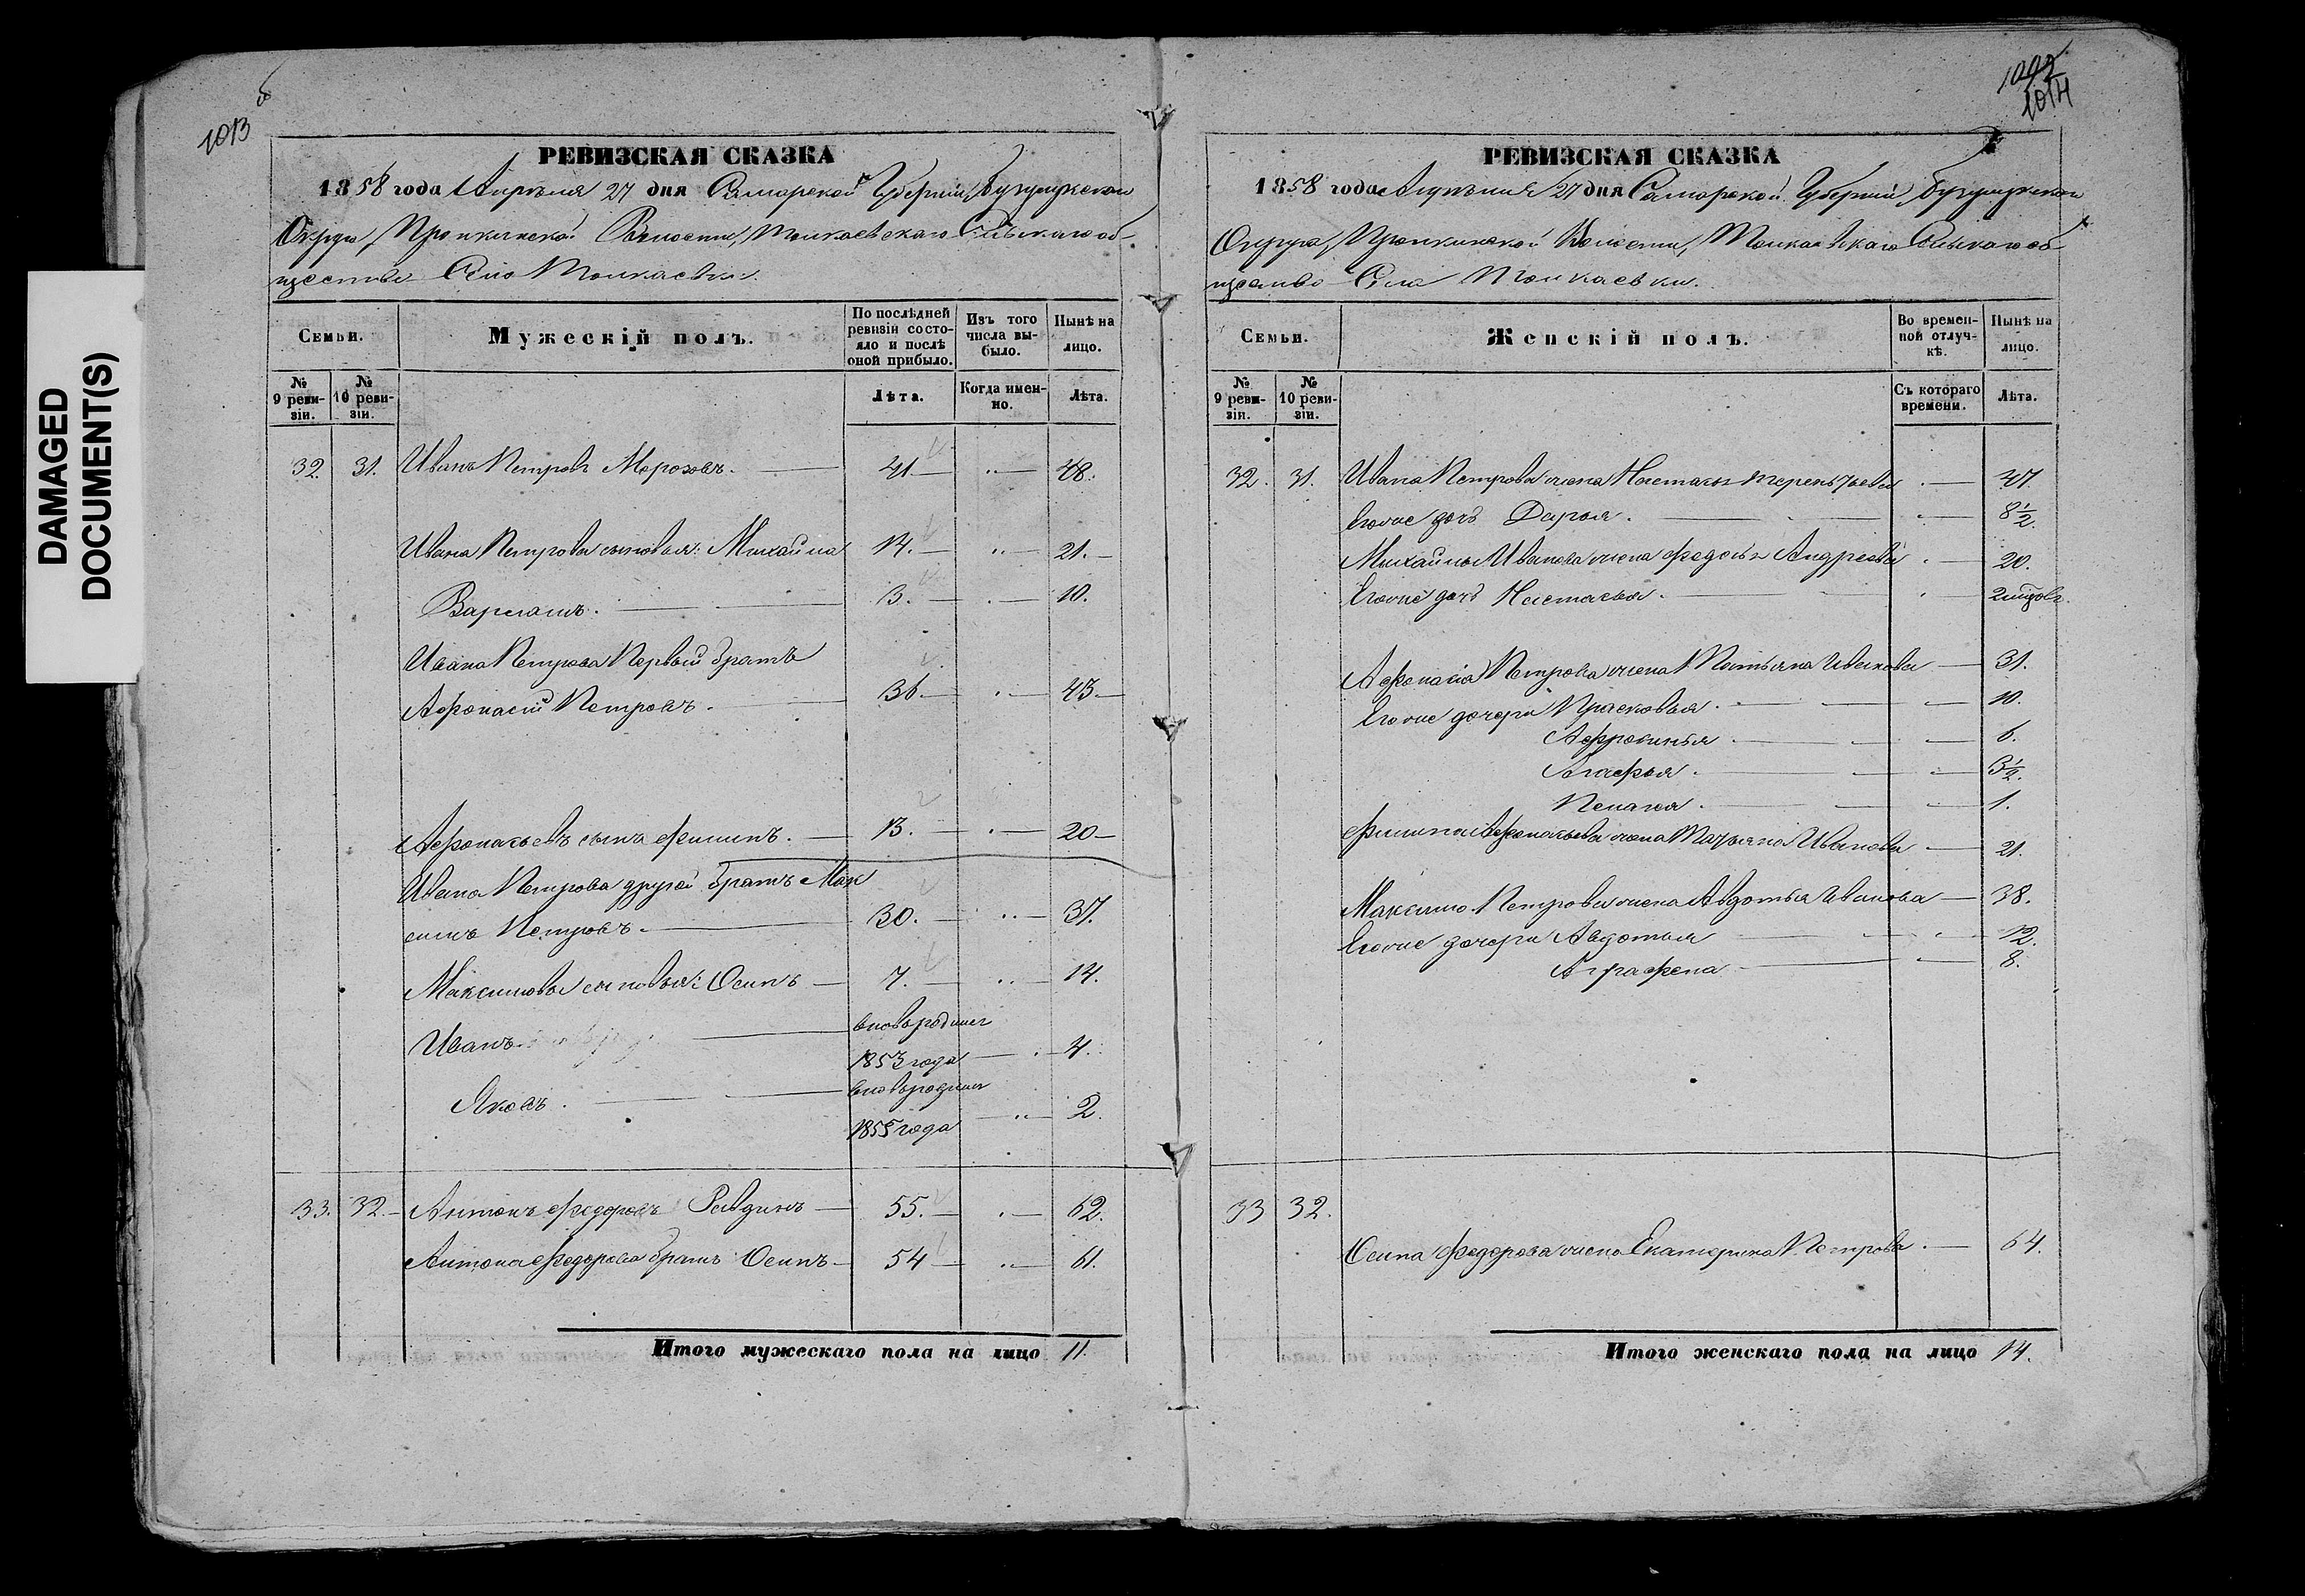 DAMAGED
DOCUMENT(S)
1013
РЕВИЗСКАЯ СКАЗКА
1858 года Апрѣля 27 дня Самарской Губерніи, Бузулукскаго
Округа, Пронкинской Волости, Толкаевскаго Сельскаго об-
щества Села Толкаевки.
Семьи.
Мужескій полъ.
По послѣдней ревизіи состояло и послѣ оной прибыло.
Изъ того числа выбыло.
Нынѣ на лицо.
№ 9 ревизіи.
№ 10 ревизіи.
Лѣта.
Когда именно.
Лѣта.
32. 31. Иванъ Петровъ Морозовъ. 41 48.
Ивана Петрова сыновья: Михайла 14. 21.
Варламъ. 3. 10.
Ивана Петрова Первый братъ
Афонасій Петровъ. 36. 43
Афонасьевъ сынъ Филипъ. 13. 20
Ивана Петрова другой братъ Мак
симъ Петровъ. 30. 37.
Максимовы сыновья: Осипъ 7. 14.
вновьродился
Иванъ 1853 года 4.
вновьродился
Яковъ. 1855 года 2.
33. 32. Антонъ Федоровъ Ревдинъ 55. 62.
Антона Федорова братъ Осипъ 54 61.
Итого мужескаго пола на лицо 11.
1002
1014
РЕВИЗСКАЯ СКАЗКА
1858 года Апрѣля 27 дня Самарской Губерніи, Бузулукскаго
Округа, Пронкинской Волости, Толкаевскаго Сельскаго об-
щества Села Толкаевки.
Семьи.
Женскій полъ.
Во временной отлучкѣ.
Нынѣ на лицо.
№ 9 ревизіи.
№ 10 ревизіи.
Съ котораго времени.
Лѣта.
32. 31. Ивана Петрова жена Настасья Терентьева 47.
Егоже дочь Дарья. 8½.
Михайлы Иванова жена Федосья Андреева 20.
Егоже дочь Настасья. 2
Афонасія Петрова жена Татьяна Иванова 31.
Егоже дочери Прасковья. 10.
Афросинья 6.
Агафья. 3½.
Пелагея. 1.
Филипа Афонасьева жена Татьяна Иванова 21.
Максима Петрова жена Авдотья Иванова 38.
Егоже дочери Авдотья 12.
Аграфена 8.
33 32.
Осипа Федорова жена Екатерина Петрова. 64.
Итого женскаго пола на лицо 14.